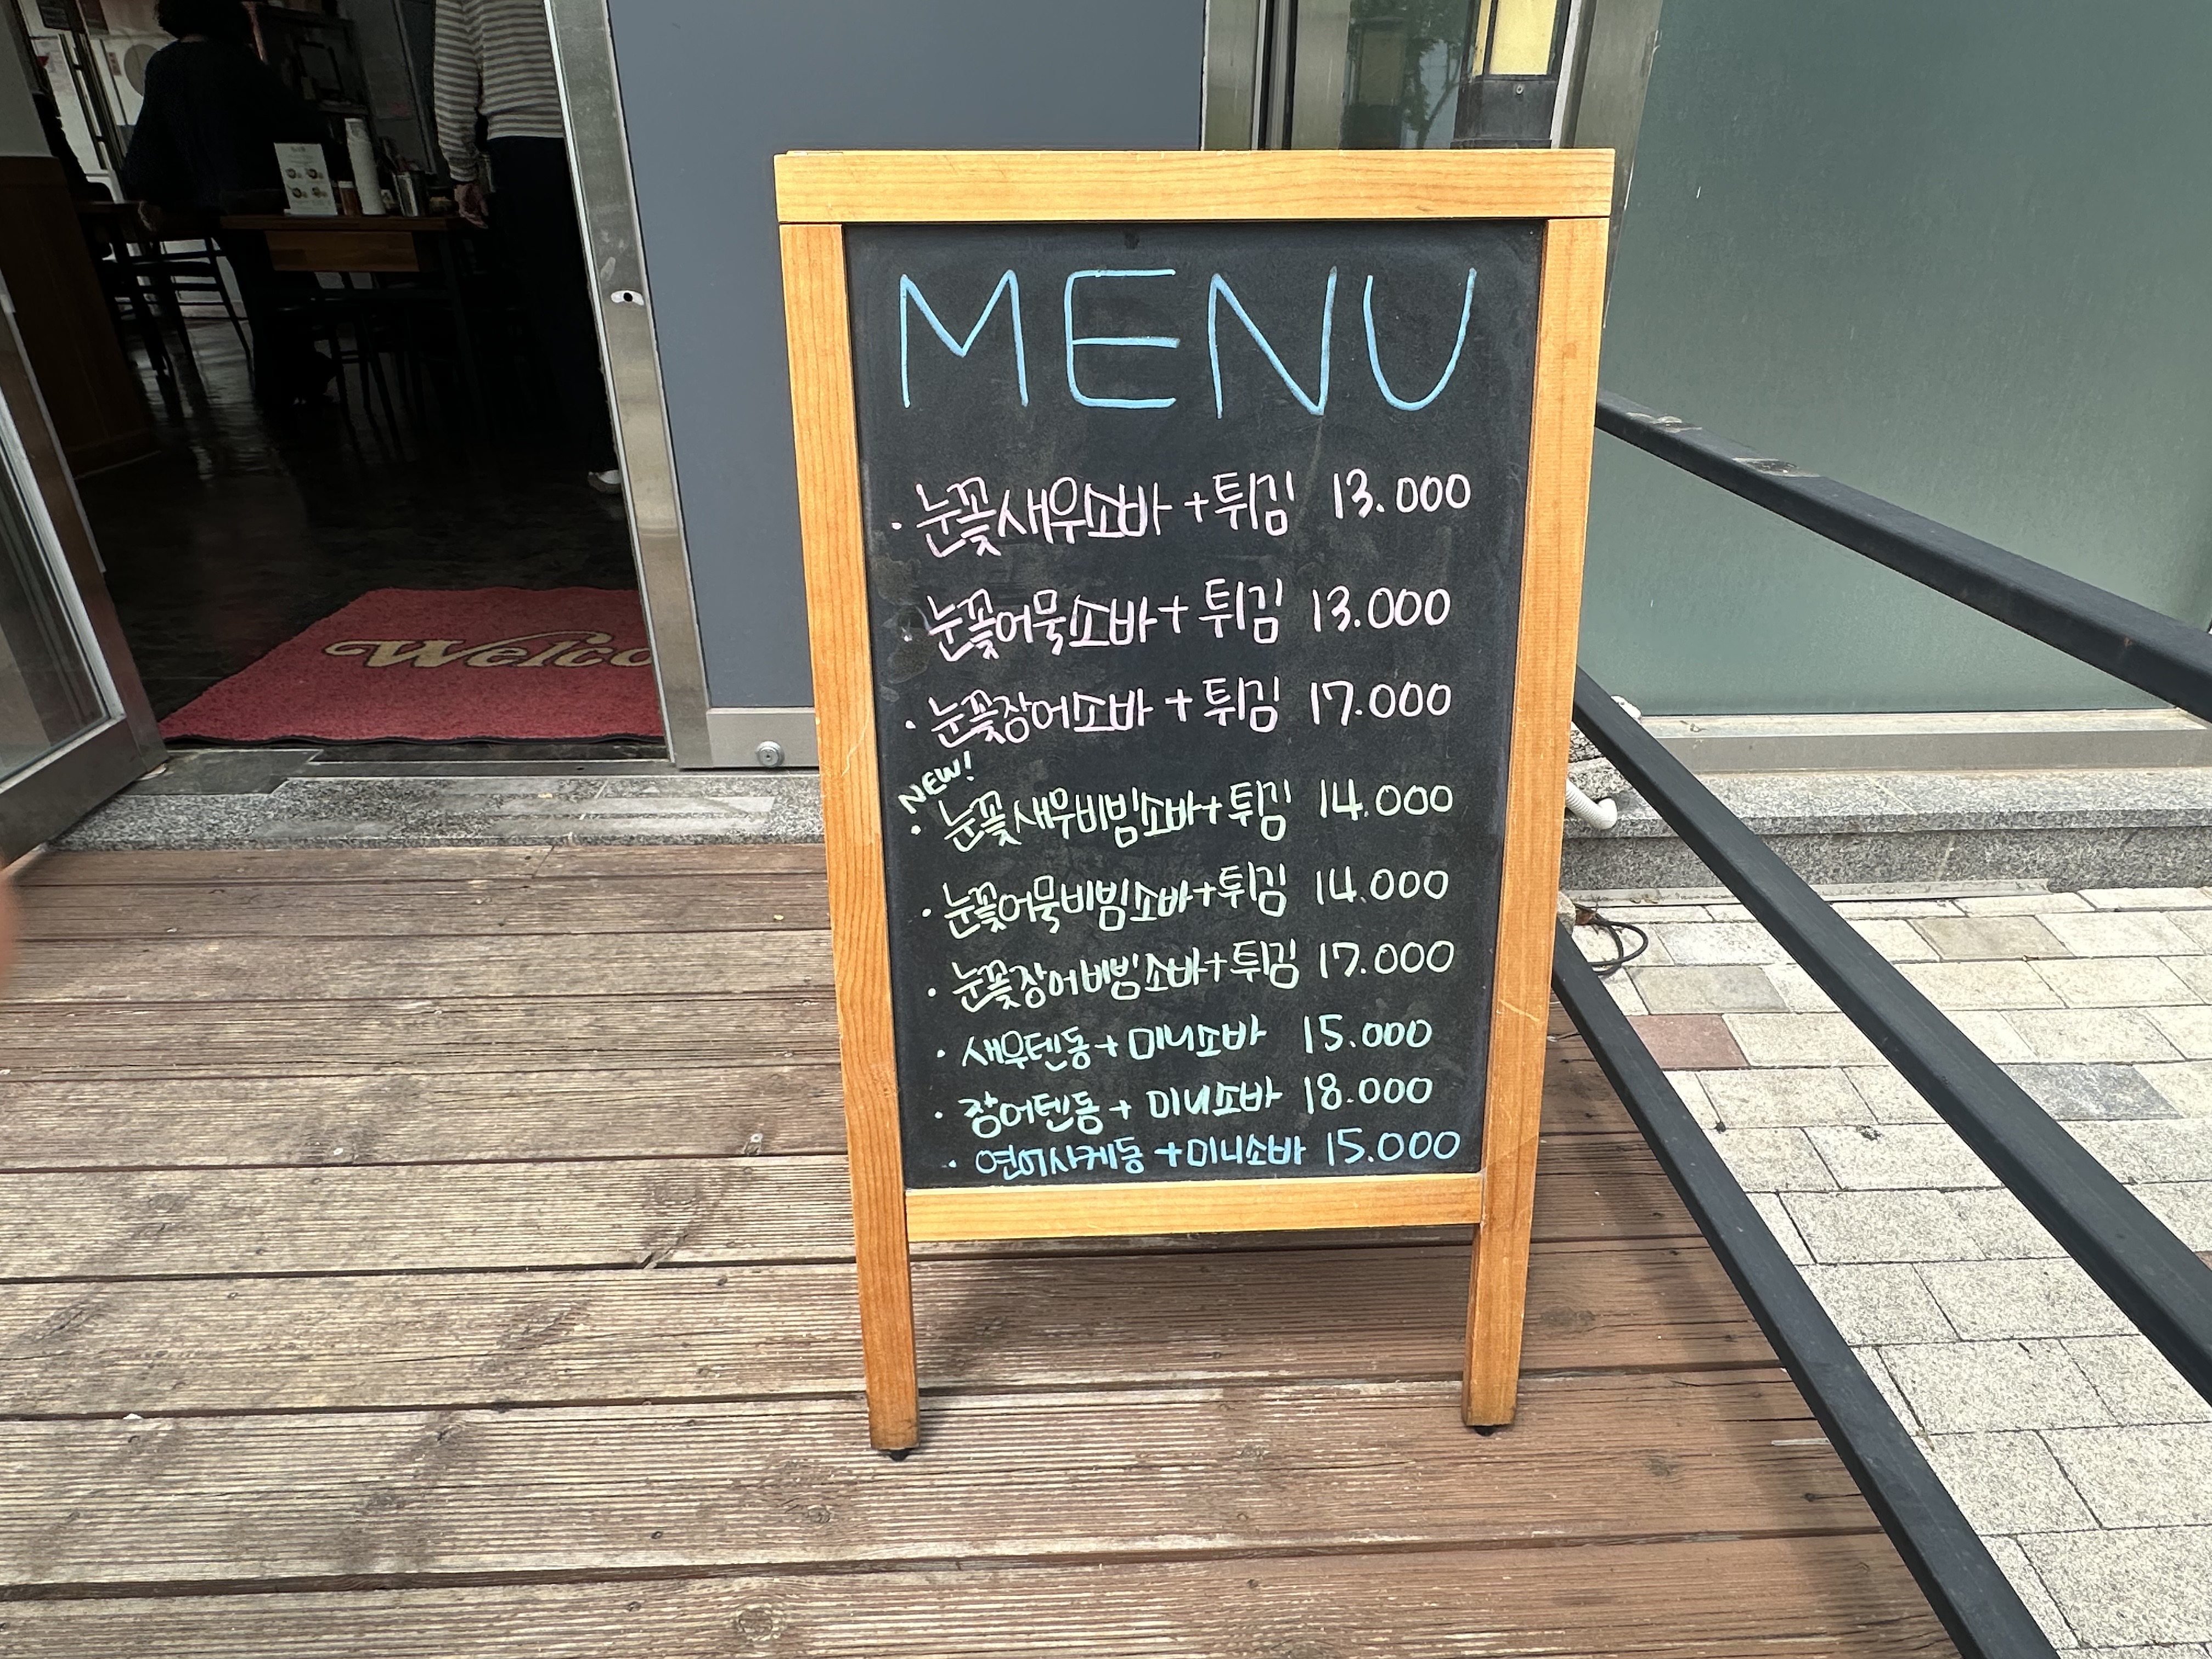 MENU
· 눈꽃새우소바 + 튀김 13.000
· 눈꽃어묵소바 + 튀김 13.000
· 눈꽃장어소바 + 튀김 17.000
NEW!
· 눈꽃새우비빔소바 + 튀김 14.000
· 눈꽃어묵비빔소바 + 튀김 14.000
· 눈꽃장어비빔소바 + 튀김 17.000
· 새우텐동 + 미니소바 15.000
· 장어텐동 + 미니소바 18.000
· 연어사케동 + 미니소바 15.000
Welco